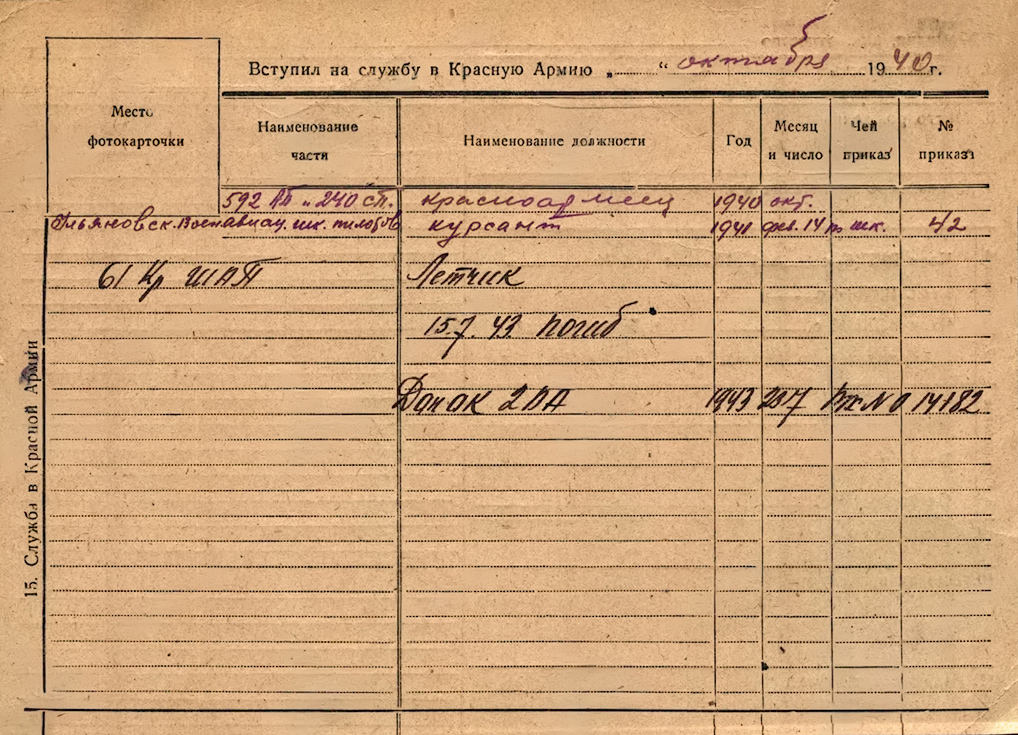 Вступил на службу в Красную Армию „ “ октября 1940 г.
Место фотокарточки
Наименование части
Наименование должности
Год
Месяц и число
Чей приказ
№ приказа
592 АП 240 сп. красноармеец 1940 окт.
Ульяновск. Воен авиац. шк. пилотов курсант 1941 фев. 14 по шк. 42
61 Кр ШАП Летчик
15.7.43 погиб
Донок 2ВА 1943 297 Вх N 0 14182
15. Служба в Красной Армии